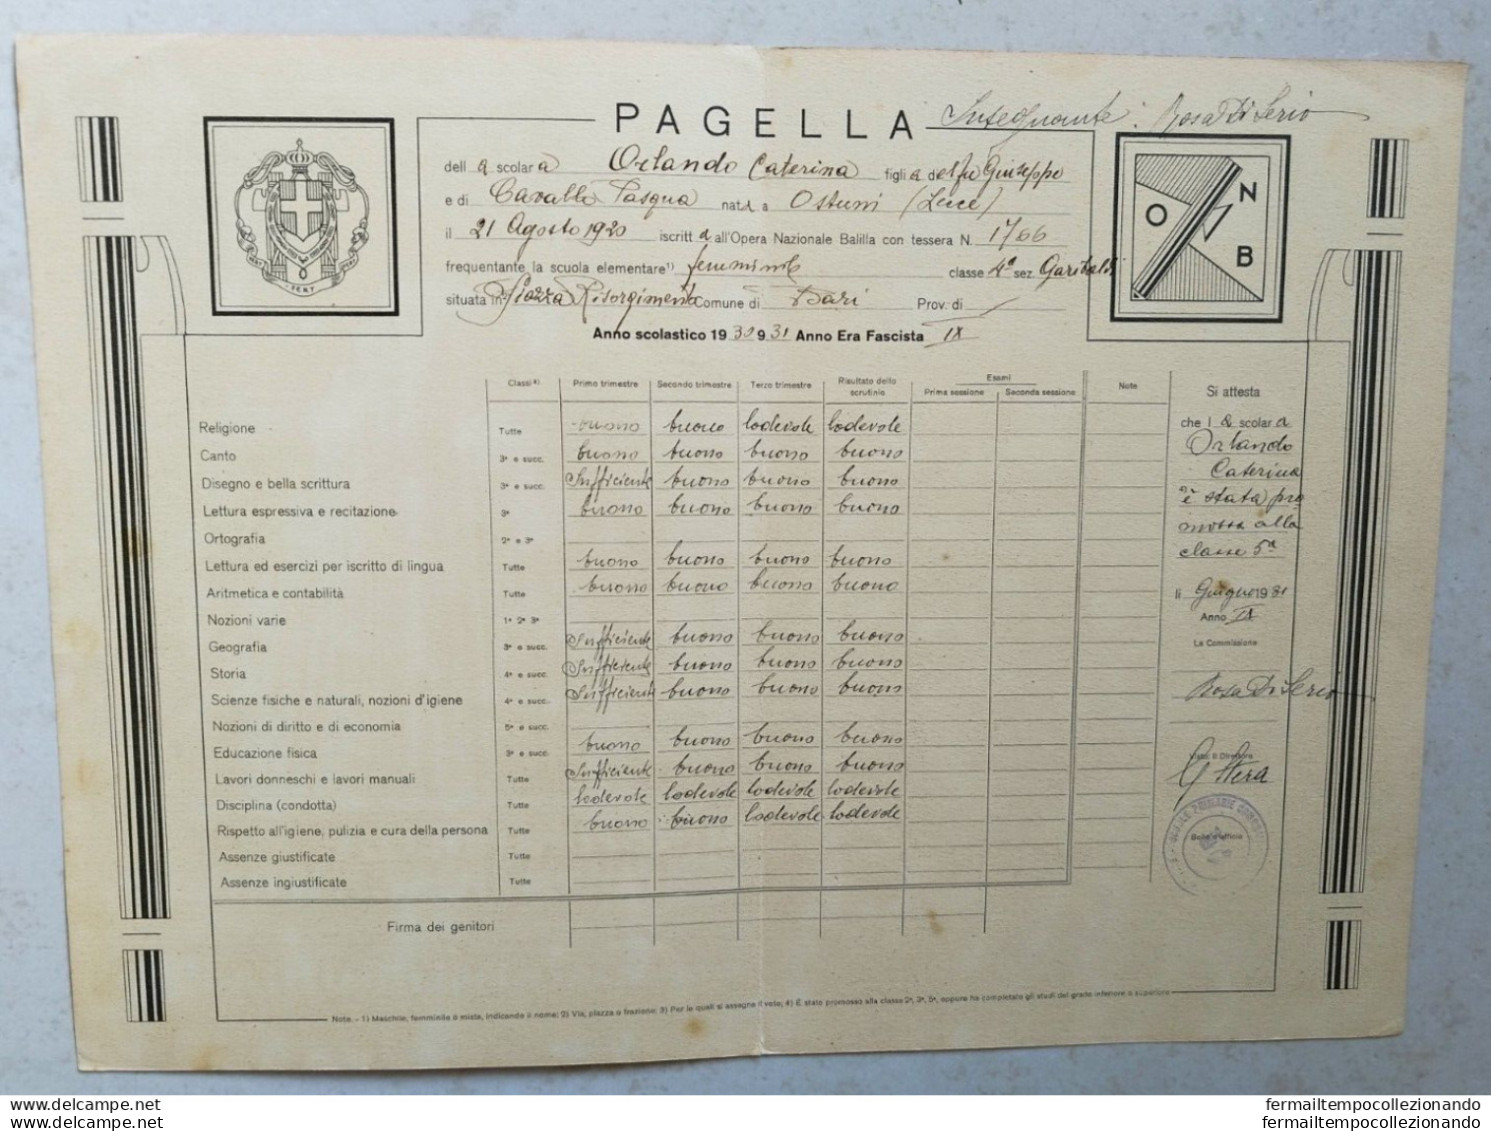 PAGELLA Insegnante: Rosa Di Serio
dell a scolar a Orlando Caterina figli a del fu Giuseppe
e di Cavallo Pasqua nat a a Ostuni (Lecce)
il 21 Agosto 1920 iscritt a all'Opera Nazionale Balilla con tessera N. 1766
frequentante la scuola elementare¹) femminile classe 4ª sez. Garibaldi
situata in Piazza Risorgimento Comune di Bari Prov. di
Anno scolastico 1930 931 Anno Era Fascista IX
FERT FERT FERT
O N B
Classi Primo trimestre Secondo trimestre Terzo trimestre Risultato dello scrutinio Esami Prima sessione Seconda sessione Note
Religione Tutte buono buono lodevole lodevole
Canto 3ª e succ. buono buono buono buono
Disegno e bella scrittura 3ª e succ. Sufficiente buono buono buono
Lettura espressiva e recitazione 3ª buono buono buono buono
Ortografia 2ª e 3ª
Lettura ed esercizi per iscritto di lingua Tutte buono buono buono buono
Aritmetica e contabilità Tutte buono buono buono buono
Nozioni varie 1ª 2ª 3ª
Geografia 3ª e succ. Sufficiente buono buono buono
Storia 4ª e succ. Sufficiente buono buono buono
Scienze fisiche e naturali, nozioni d'igiene 4ª e succ. Sufficiente buono buono buono
Nozioni di diritto e di economia 5ª e succ.
Educazione fisica 3ª e succ. buono buono buono buono
Lavori donneschi e lavori manuali Tutte Sufficiente buono buono buono
Disciplina (condotta) Tutte lodevole lodevole lodevole lodevole
Rispetto all'igiene, pulizia e cura della persona Tutte buono buono lodevole lodevole
Assenze giustificate Tutte
Assenze ingiustificate Tutte
Firma dei genitori
Si attesta
che l a scolar a
Orlando
Caterina
è stata pro
mossa alla
classe 5ª
lì Giugno 1931
Anno IX
La Commissione
Rosa Di Serio
Visto: Il Direttore
Bollo d'ufficio
Note. - 1) Maschile, femminile o mista, indicando il nome; 2) Via, piazza o frazione; 3) Per le quali si assegna il voto; 4) È stato promosso alla classe 2ª, 3ª, 5ª, oppure ha completato gli studi del grado inferiore o superiore
fermailtempocollezionando
fermailtempocollezionando
fermailtempocollezionando
fermailtempocollezionando